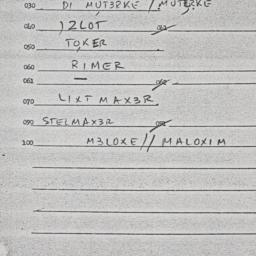 030 DI MUT3RKE / MUT3RKE
040 IZLOT
050 TOKER
060 RIMER
061
070 LIXT MAX3R
090 STELMAX3R
100 M3LOXE // MALOXIM